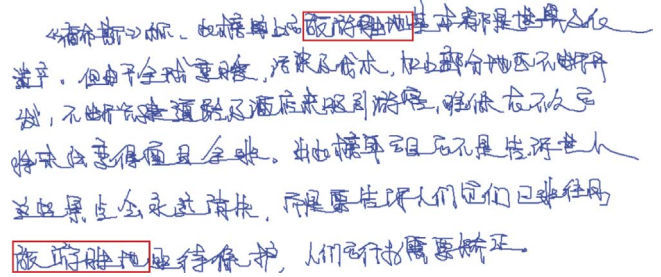 《福布斯》称，此榜单上的旅游胜地基本都是世界文化
遗产。但由于全球变暖，污染及伐木，加上部分地区不断开
发，不断兴建道路及酒店来吸引游客，难保在不久后
将来会变得面目全非。此榜单目的不是告诉世人
这些景点会永远消失，而是要告诉人们它们已难往的
旅游胜地亟待保护，人们言行打需要矫正。